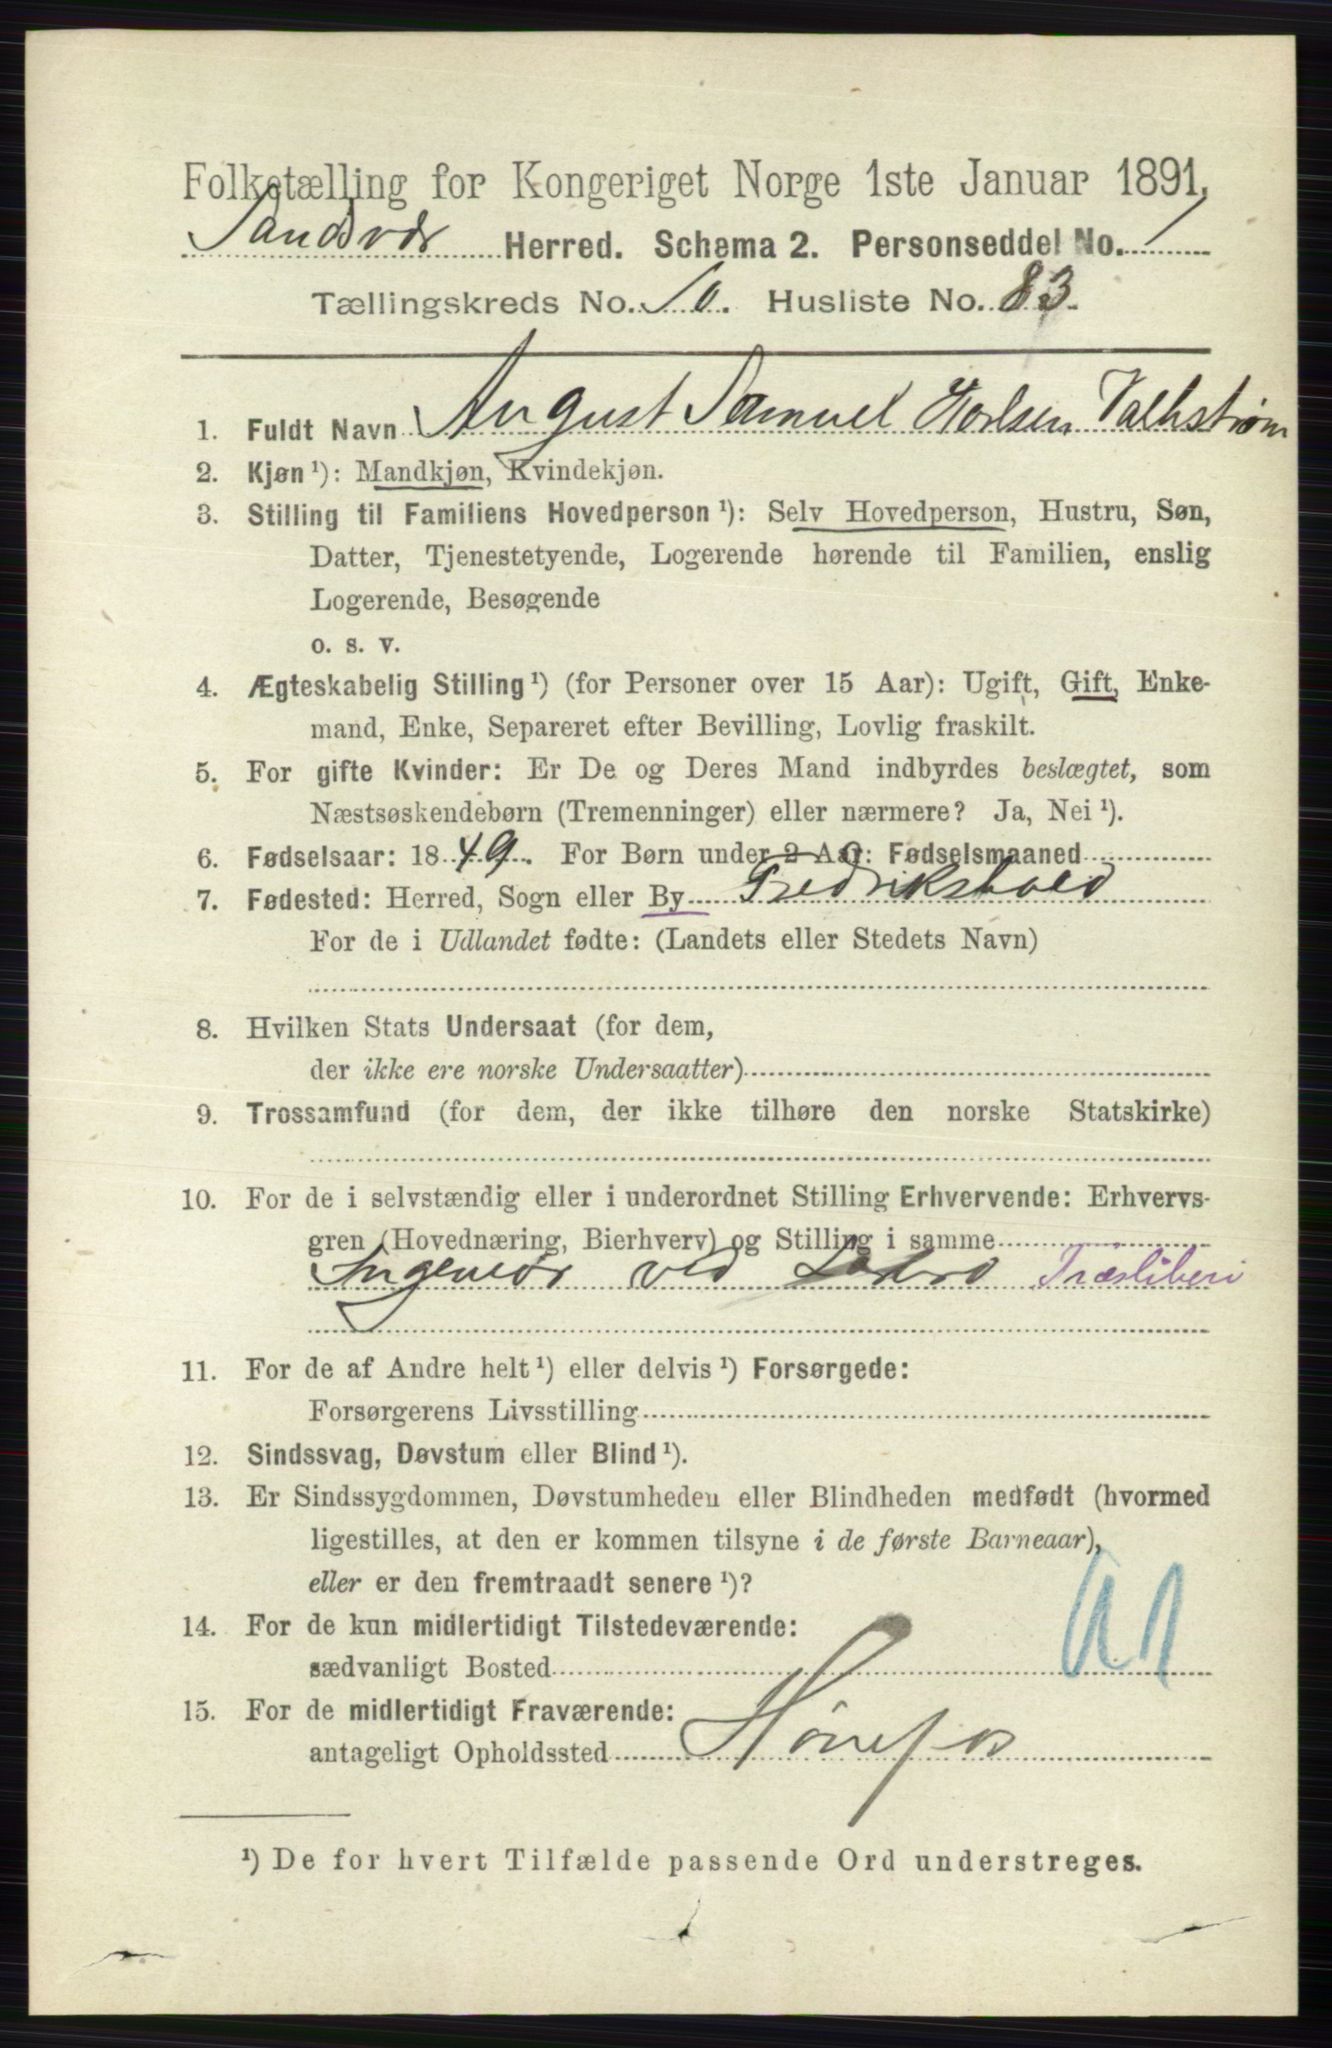 Folketælling for Kongeriget Norge 1ste Januar 1891.
Sandsvær Herred. Schema 2. Personseddel No. 1
Tællingskreds No. 10. Husliste No. 83.
1. Fuldt Navn August Samuel Karlsen Valhstrøm
2. Kjøn ¹): Mandkjøn, Kvindekjøn.
3. Stilling til Familiens Hovedperson ¹): Selv Hovedperson, Hustru, Søn,
Datter, Tjenestetyende, Logerende hørende til Familien, enslig
Logerende, Besøgende
o. s. v.
4. Ægteskabelig Stilling ¹) (for Personer over 15 Aar): Ugift, Gift, Enke-
mand, Enke, Separeret efter Bevilling, Lovlig fraskilt.
5. For gifte Kvinder: Er De og Deres Mand indbyrdes beslægtet, som
Næstsøskendebørn (Tremenninger) eller nærmere? Ja, Nei ¹).
6. Fødselsaar: 1849. For Børn under 2 Aar: Fødselsmaaned
7. Fødested: Herred, Sogn eller By Fredrikshald
For de i Udlandet fødte: (Landets eller Stedets Navn)
8. Hvilken Stats Undersaat (for dem,
der ikke ere norske Undersaatter)
9. Trossamfund (for dem, der ikke tilhøre den norske Statskirke)
10. For de i selvstændig eller i underordnet Stilling Erhvervende: Erhvervs-
gren (Hovednæring, Bierhverv) og Stilling i samme
Ingeniør ved Træsliberi
11. For de af Andre helt ¹) eller delvis ¹) Forsørgede:
Forsørgerens Livsstilling
12. Sindssvag, Døvstum eller Blind ¹).
13. Er Sindssygdommen, Døvstumheden eller Blindheden medfødt (hvormed
ligestilles, at den er kommen tilsyne i de første Barneaar),
eller er den fremtraadt senere ¹)?
14. For de kun midlertidigt Tilstedeværende:
sædvanligt Bosted
15. For de midlertidigt Fraværende:
antageligt Opholdssted Hønefos
¹) De for hvert Tilfælde passende Ord understreges.